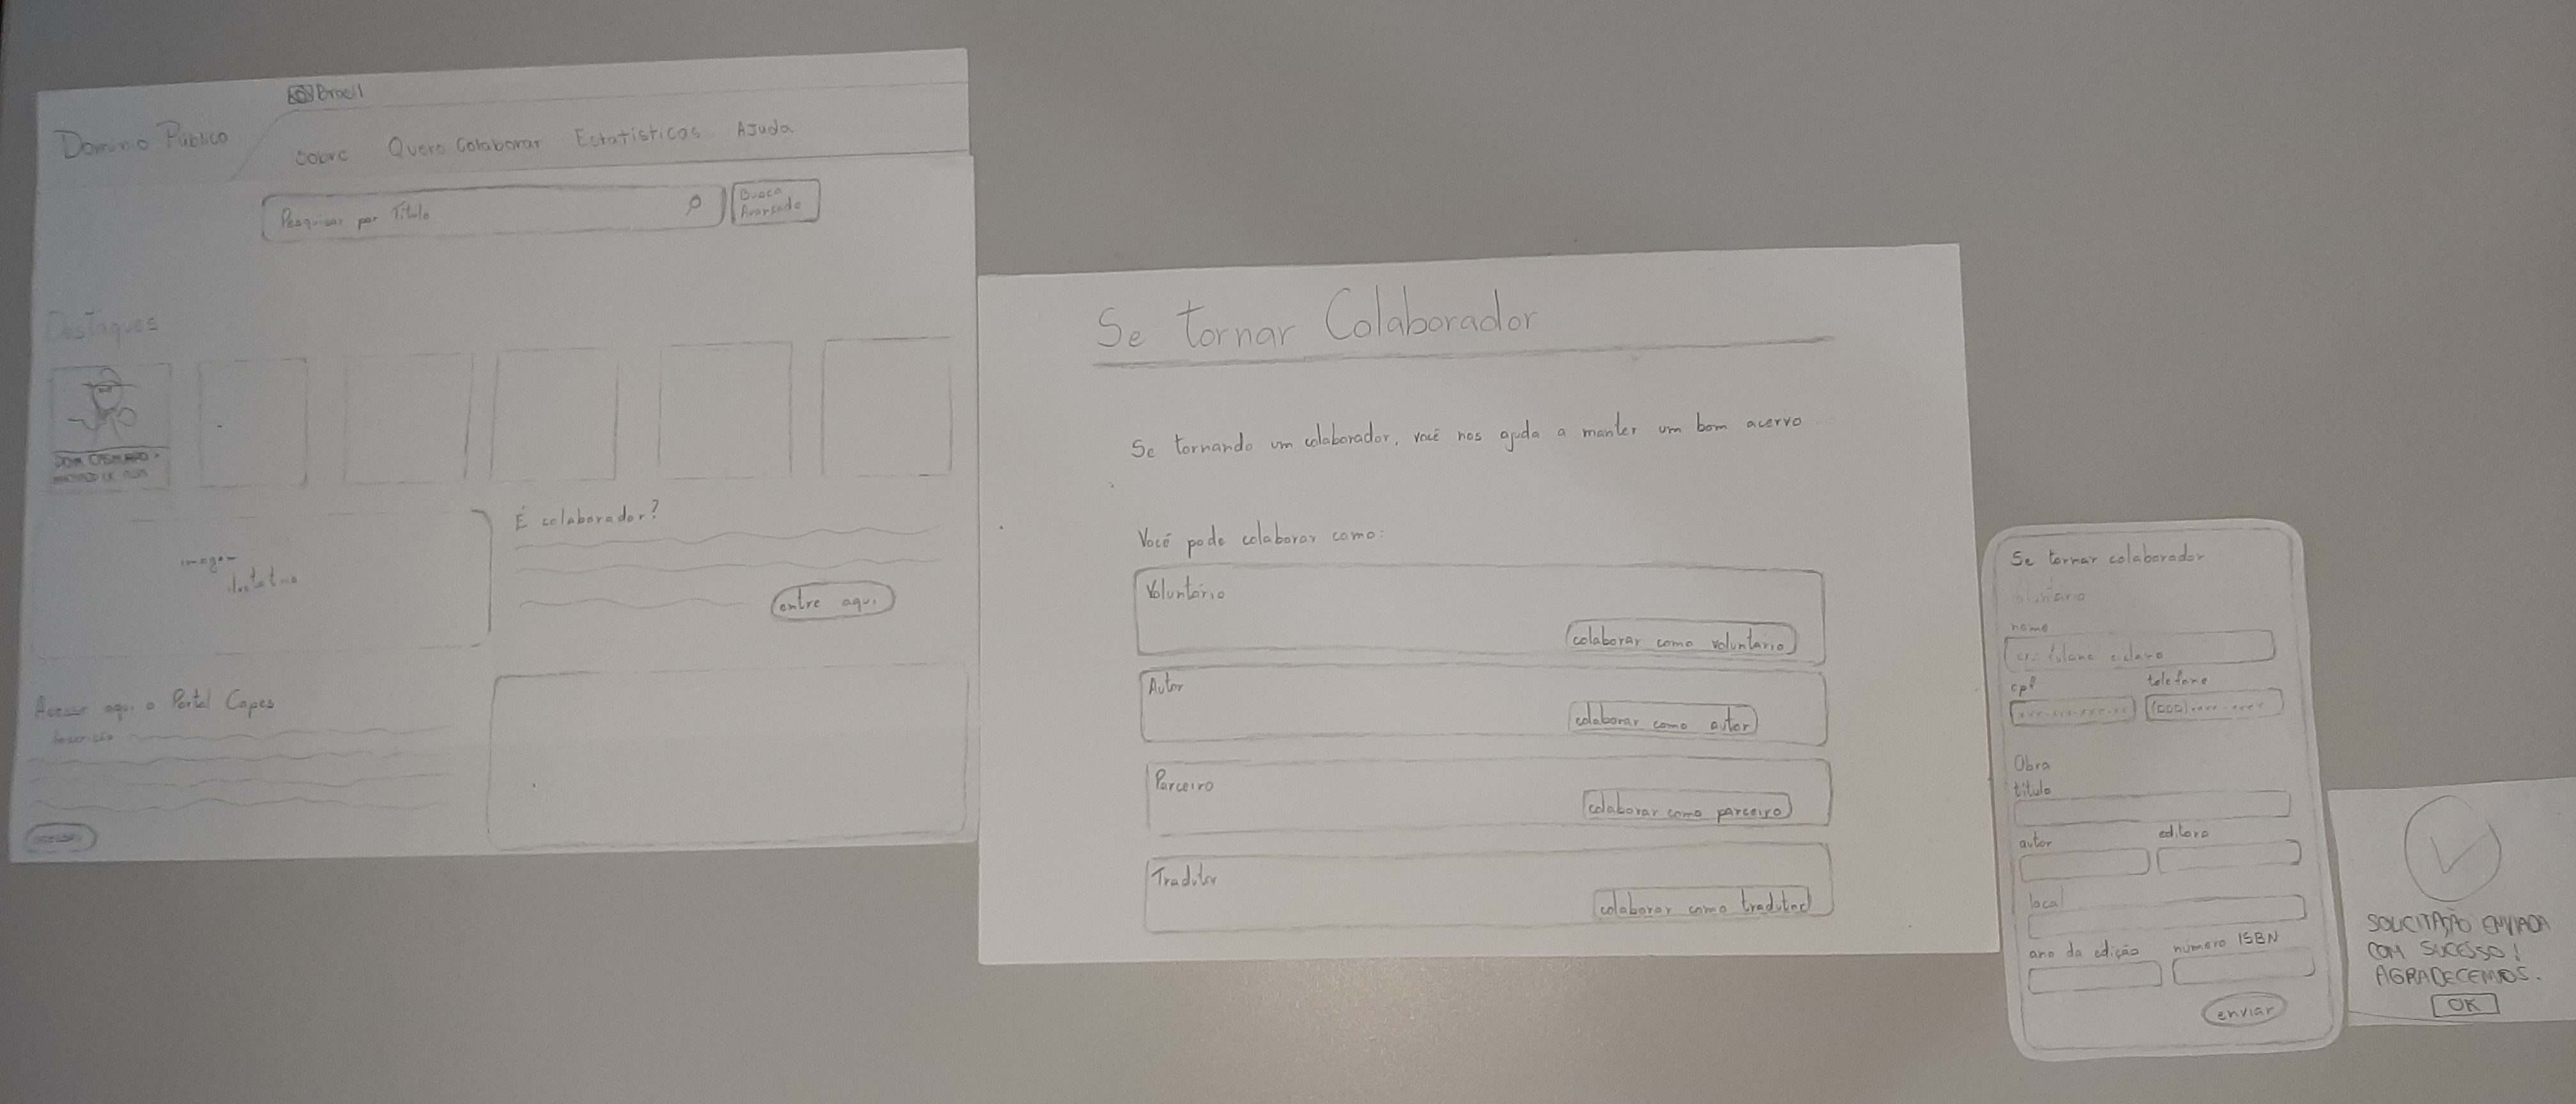 Brasil
Domínio Público
Sobre Quero Colaborar Estatísticas Ajuda
Pesquisar por Título
Busca
Avançada
Destaques
DOM CASMURRO
É colaborador?
entre aqui
imagem
Acesse aqui o Portal Capes
Se tornar Colaborador
Se tornando um colaborador, você nos ajuda a manter um bom acervo
Você pode colaborar como:
Voluntário
colaborar como voluntário
Autor
colaborar como autor
Parceiro
colaborar como parceiro
Tradutor
colaborar como tradutor
Se tornar colaborador
nome
cpf
telefone
Obra
título
autor
editora
local
ano da edição
número ISBN
enviar
SOLICITAÇÃO ENVIADA
COM SUCESSO!
AGRADECEMOS.
OK